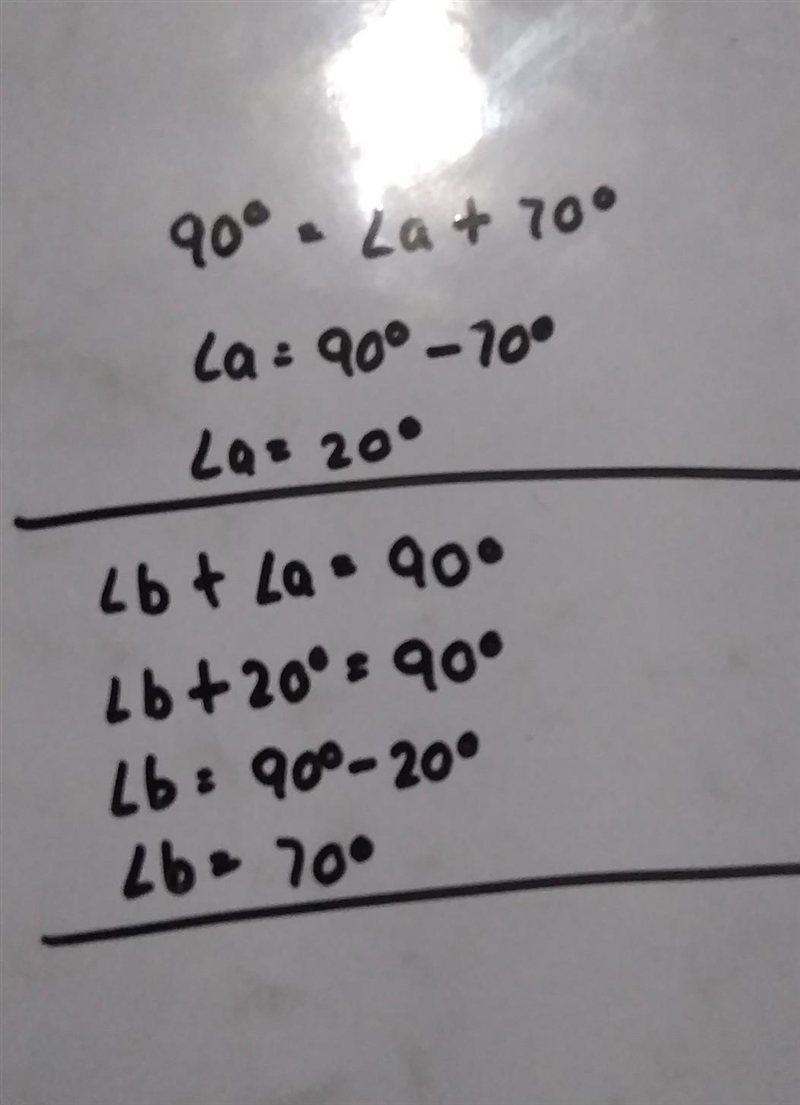 90° = ∠a + 70°
∠a = 90° - 70°
∠a = 20°
∠b + ∠a = 90°
∠b + 20° = 90°
∠b = 90° - 20°
∠b = 70°